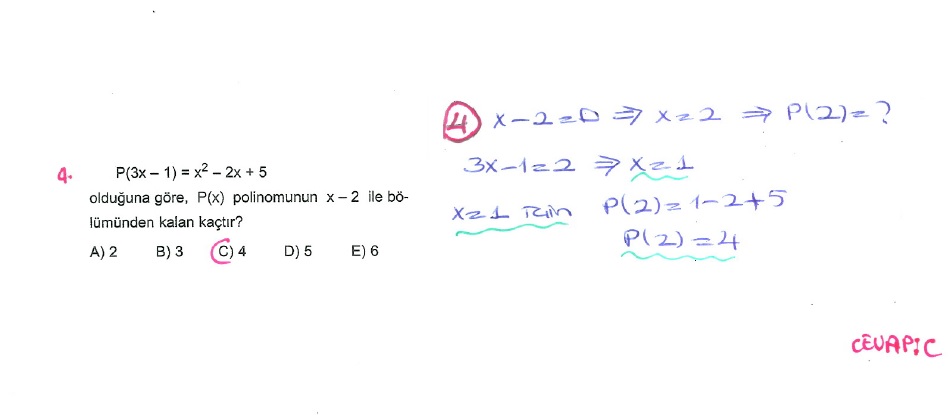 4. P(3x – 1) = x² – 2x + 5
olduğuna göre, P(x) polinomunun x – 2 ile bö-
lümünden kalan kaçtır?
A) 2 B) 3 C) 4 D) 5 E) 6
4 x – 2 = 0 ⇒ x = 2 ⇒ P(2) = ?
3x – 1 = 2 ⇒ x = 1
x = 1 için P(2) = 1 – 2 + 5
P(2) = 4
CEVAP: C